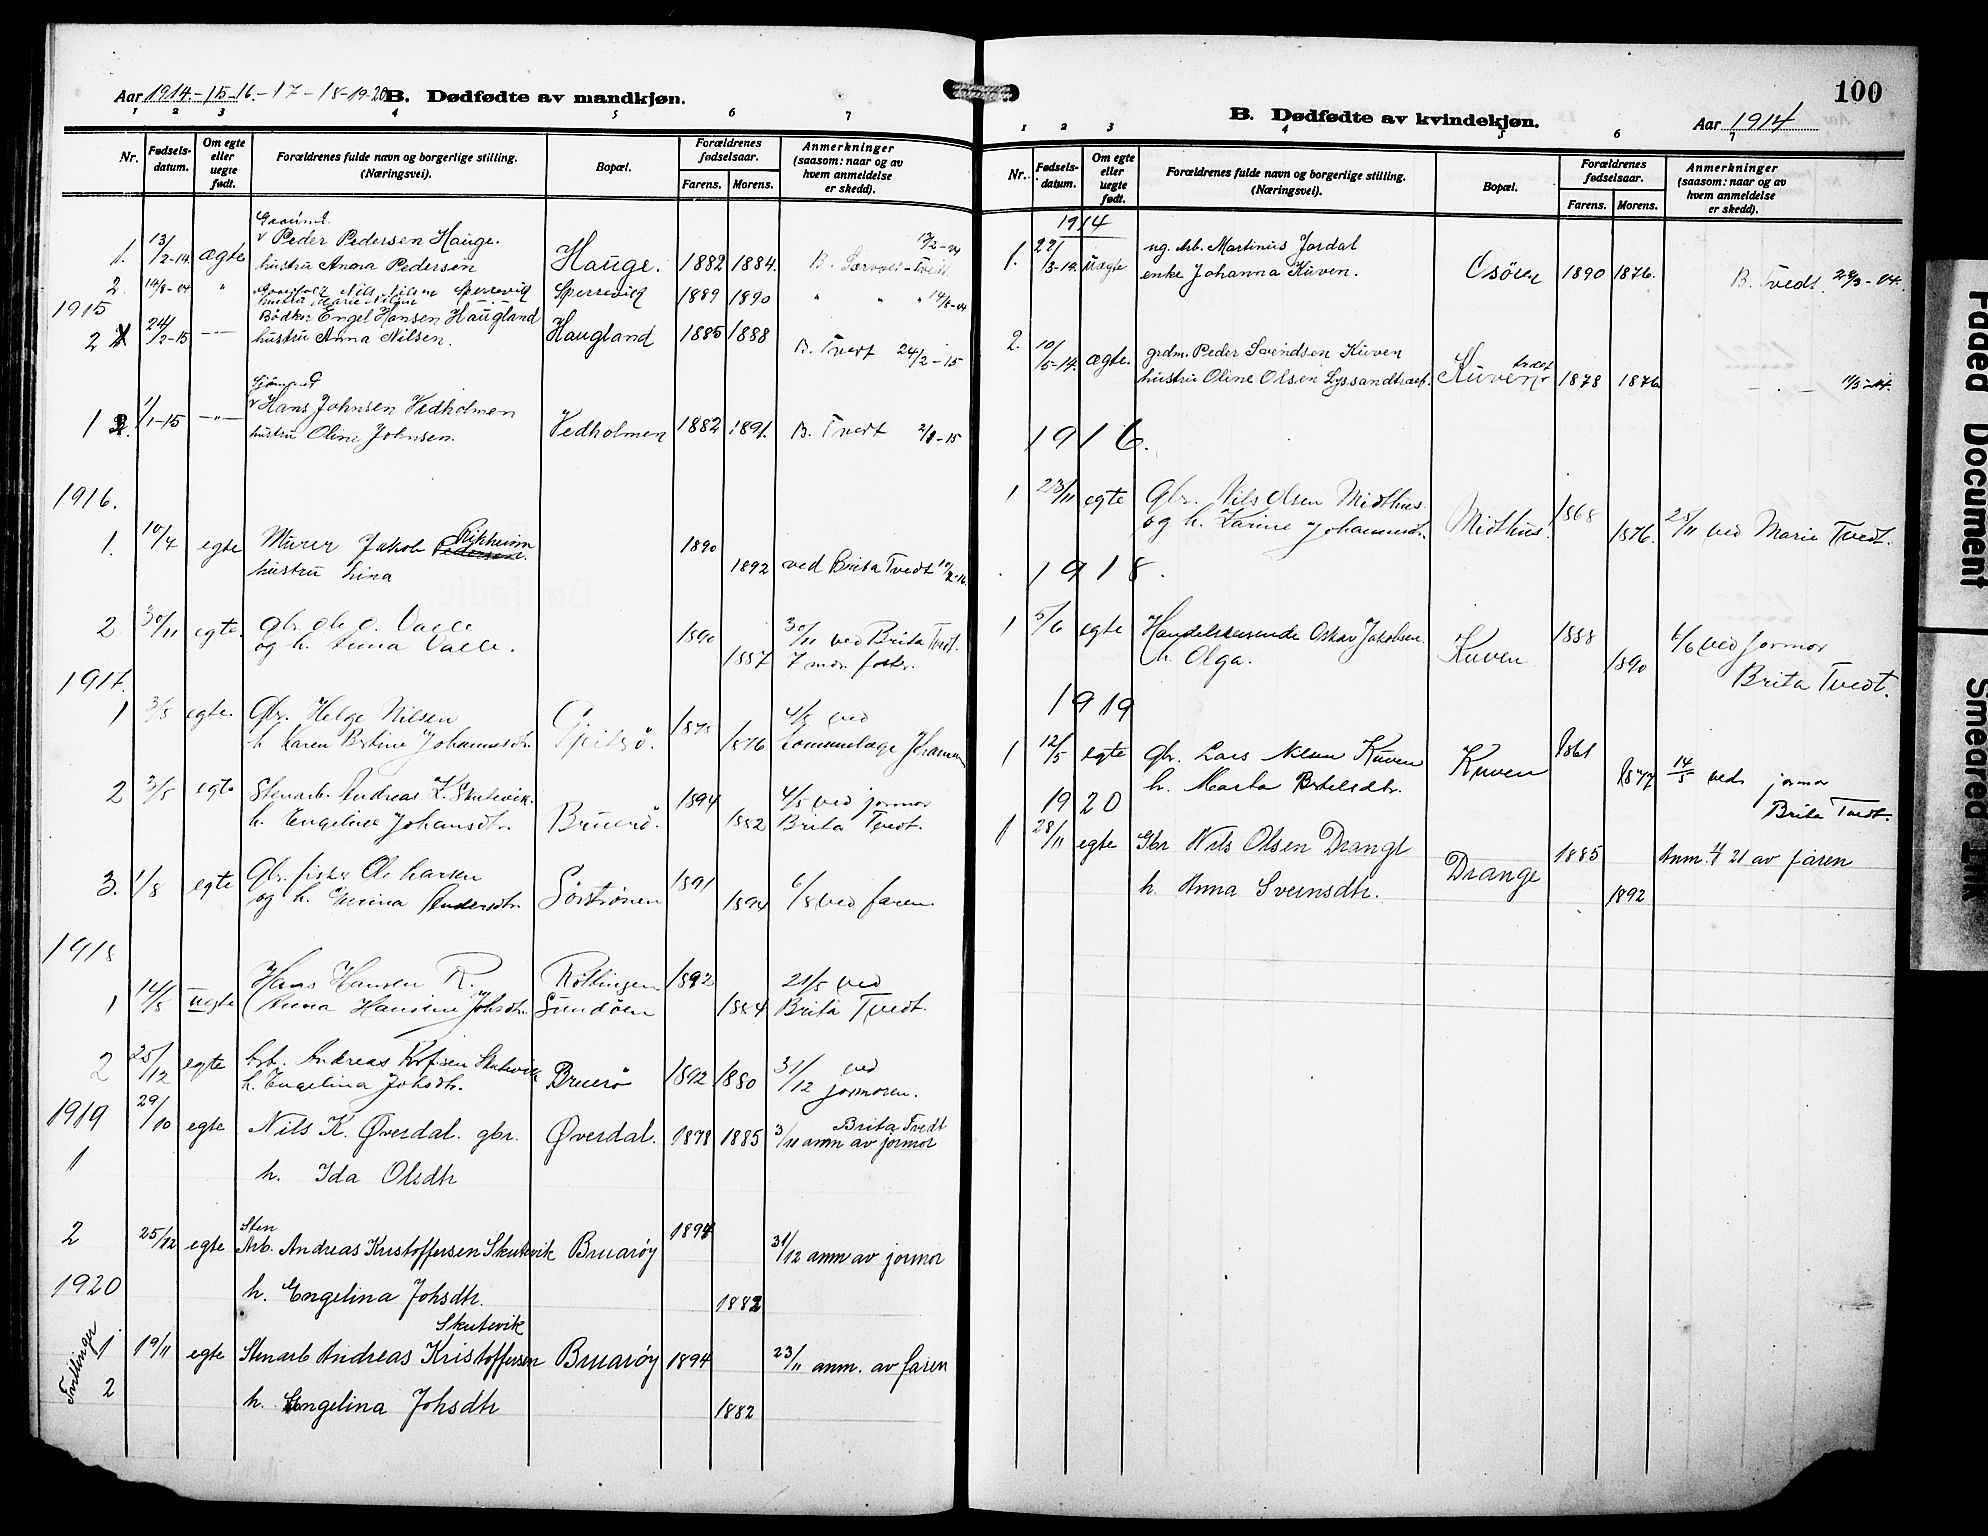 Aar 1914.-15-16.-17-18-19-20 B. Dødfødte av mandkjøn.
1 2 3 4 5 6 7
Nr. Fødsels-datum. Om egte eller uegte født. Forældrenes fulde navn og borgerlige stilling. (Næringsvei). Bopæl. Forældrenes fødselsaar. Farens. Morens. Anmerkninger (saasom: naar og av hvem anmeldelse er skedd).
1. 13/2-14. ægte Peder Pedersen Hauge. Hauge. 1882 1884.
hustru Anna Pedersen
2. 14/8-04 " Nils Nilsen Sperrevik Sperrevik 1889 1890 " " " 14/8-04
hustru Marie Nilsen
1915
2 24/2-15 -"- Bødker Engel Hansen Haugland Haugland 1885 1888 B. Tvedt 24/2-15
hustru Anna Nilsen.
1 1/1-15 -"- Hans Johnsen Vedholmen Vedholmen 1882 1891. B. Tvedt 2/1-15
hustru Oline Johnsen.
1916.
1. 10/7 egte Murer Jakob Pedersen Rikheim 1890
hustru Lina 1892 ved Brita Tvedt
2 30/11 egte. gbr. Ole O. Valle 1890 30/11 ved Brita Tvedt.
og h. Anna Valle. 1887 7 mdr. foster.
1917.
1 3/5 egte. Gbr. Helge Nilsen 1875 4/5 ved
h. Karen Bertine Johannesdtr. 1876 kommunelæge
2 3/5 egte Stenarb. Andreas K. Skutevik. Bruerö. 1894 4/5 ved jormor
h. Engeline Johansdtr. 1882 Brita Tvedt.
3. 1/8 egte Gbr. fisker Ole Larsen Sörströnen 1891
og h. Andersdtr. 1894 6/8 ved faren.
1918
1 14/5 uegte Hans Hansen R. Röttingen 1892 21/5 ved
Anna Hansine Johsdtr. Sundöen 1884 Brita Tvedt.
2 25/12 egte Arb. Andreas Kristofsen Skutevik Bruerö 1892 1880 31/12 ved
h. Engelina Johsdtr. jormoren.
1919 29/10 egte Nils K. Øverdal. gbr. Øverdal. 1878 1885 3/11 anm av jormor Brita Tvedt
1 h. Ida Olsdtr
2 25/12 egte Sten Arb. Andreas Kristoffersen Skutevik Bruarøy 1894 31/12 anm av jormor
1920 h. Engelina Johsdtr. 1882
Skutevik
Tvillinger 1 19/11 egte Stenarb Andreas Kristoffersen Bruarøy 1894 23/11 anm. av faren
2 h. Engelina Johsdtr 1882
100
B. Dødfødte av kvindekjøn. Aar 1914
1 2 3 4 5 6 7
Nr. Fødsels-datum. Om egte eller uegte født. Forældrenes fulde navn og borgerlige stilling. (Næringsvei). Bopæl. Forældrenes fødselsaar. Farens. Morens. Anmerkninger (saasom: naar og av hvem anmeldelse er skedd).
1914
1. 22/3-14. uægte ug. Arb. Martinus Jordal Osören 1890 1876. B. Tvedt
enke Johanna Kuven.
2. 10/5-14. ægte. grdm. Peder Svendsen Kuven Kuventræet 1878 1876
hustru Oline Olsen Lyssandtræet.
1916.
1 23/11 egte Gbr. Nils Olsen Midthus. Midthus. 1868
og h. Karine Johannesdtr. 1876. 25/11 ved Marie Tvedt.
1918.
1 5/6 egte Handelsreisende Oskar Jakobsen Kuven 1888 6/6 ved jormor
h. Olga. 1890 Brita Tvedt.
1919
1 12/5 egte gbr. Lars Nilsen Kuven Kuven 1861 14/5 ved jormor
h. Marta Bertelsdtr. 1877 Brita Tvedt.
1920
1 28/11 egte Gbr Nils Olsen Drange Drange 1885 Anm. 4/1 21 av faren
h. Anna Sveinsdtr. 1892
Faded Document
Smeared Ink